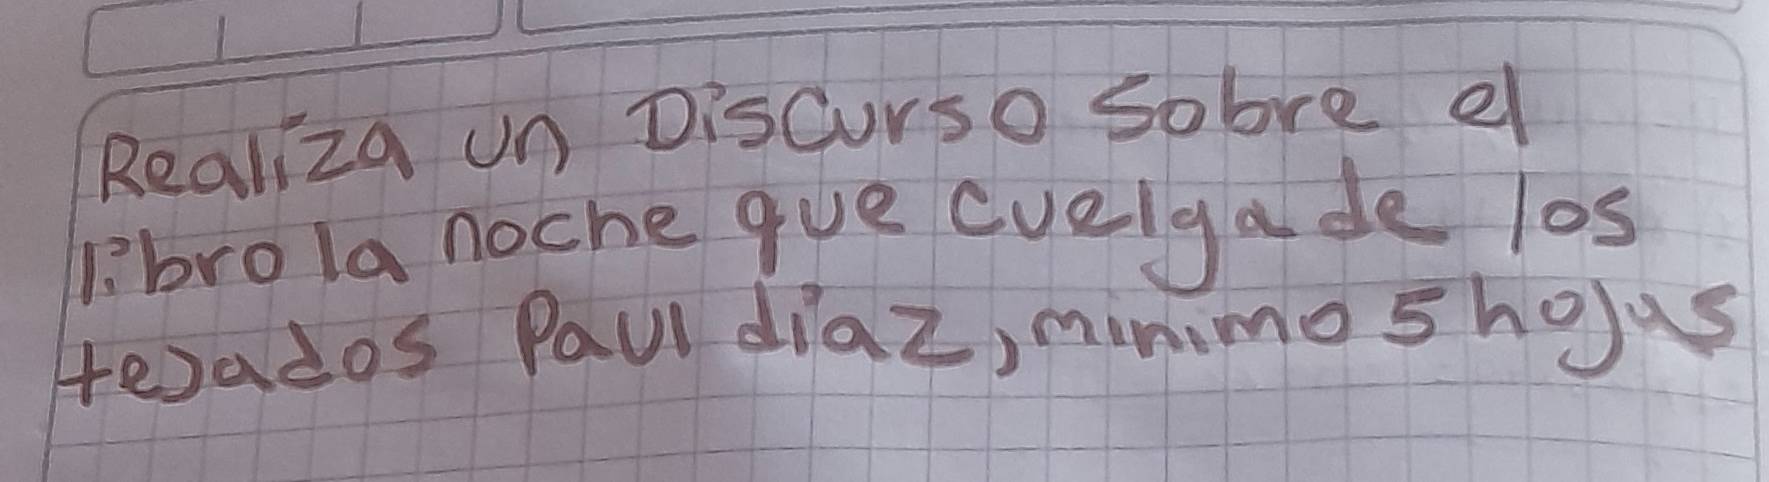 Realiza un Discurso Sobre el
libro la noche que cuelga de los
tejados Paul diaz, minimo 5 hojas